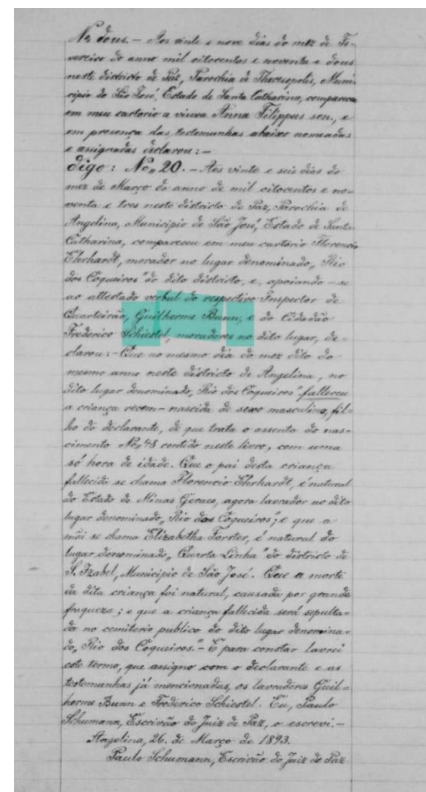 No dous. — Aos vinte e nove dias do mez de Fe-
vereiro do anno mil oitocentos e noventa e dous
neste districto de Paz, Parochia de Theresopolis, Muni-
cipio de São José, Estado de Santa Catharina, compareceu
em meu cartorio a viuva Anna Filippus sen., e
em presença das testemunhas abaixo nomeadas
e assignadas declarou: —
Digo: No. 20. — Aos vinte e seis dias do
mez de Março do anno de mil oitocentos e no-
venta e tres neste districto de Paz, Parochia de
Angelina, Municipio de São José, Estado de Santa
Catharina, compareceu em meu cartorio Florencio
Ehrhardt, morador no lugar denominado, "Rio
dos Coqueiros" do dito districto, e, apoiando-se
ao attestado verbal do respectivo Inspector de
Quarteirão, Guilherme Bunn, e do Cidadão
Frederico Schiestel, moradores no dito lugar, de-
clarou: — Que no mesmo dia do mez dito do
mesmo anno neste districto de Angelina, no
dito lugar denominado, "Rio dos Coqueiros" falleceu
a criança recem-nascida de sexo masculino, fil-
ho do declarante, de que trata o assento de nas-
cimento No. 48 contido neste livro, com uma
só hora de idade. Que o pai desta criança
fallecida se chama Florencio Ehrhardt, é natural
do Estado de Minas Geraes, agora lavrador no dito
lugar denominado, "Rio dos Coqueiros"; e que a
mãi se chama Elizabetha Forster, é natural do
lugar denominado, "Quarta Linha" do districto de
S. Izabel, Municipio de São José. Que a morte
da dita criança foi natural, causada por grande
fraqueza; e que a criança fallecida será sepulta-
da no cemiterio publico do dito lugar denomina-
do, "Rio dos Coqueiros". — E para constar lavrei
este termo, que assigno com o declarante e as
testemunhas já mencionadas, os lavradores Guil-
herme Bunn e Frederico Schiestel. Eu, Paulo
Schumann, Escrivão do Juiz de Paz, o escrevi. —
Angelina, 26. de Março de 1893.
Paulo Schumann, Escrivão do Juiz de Paz